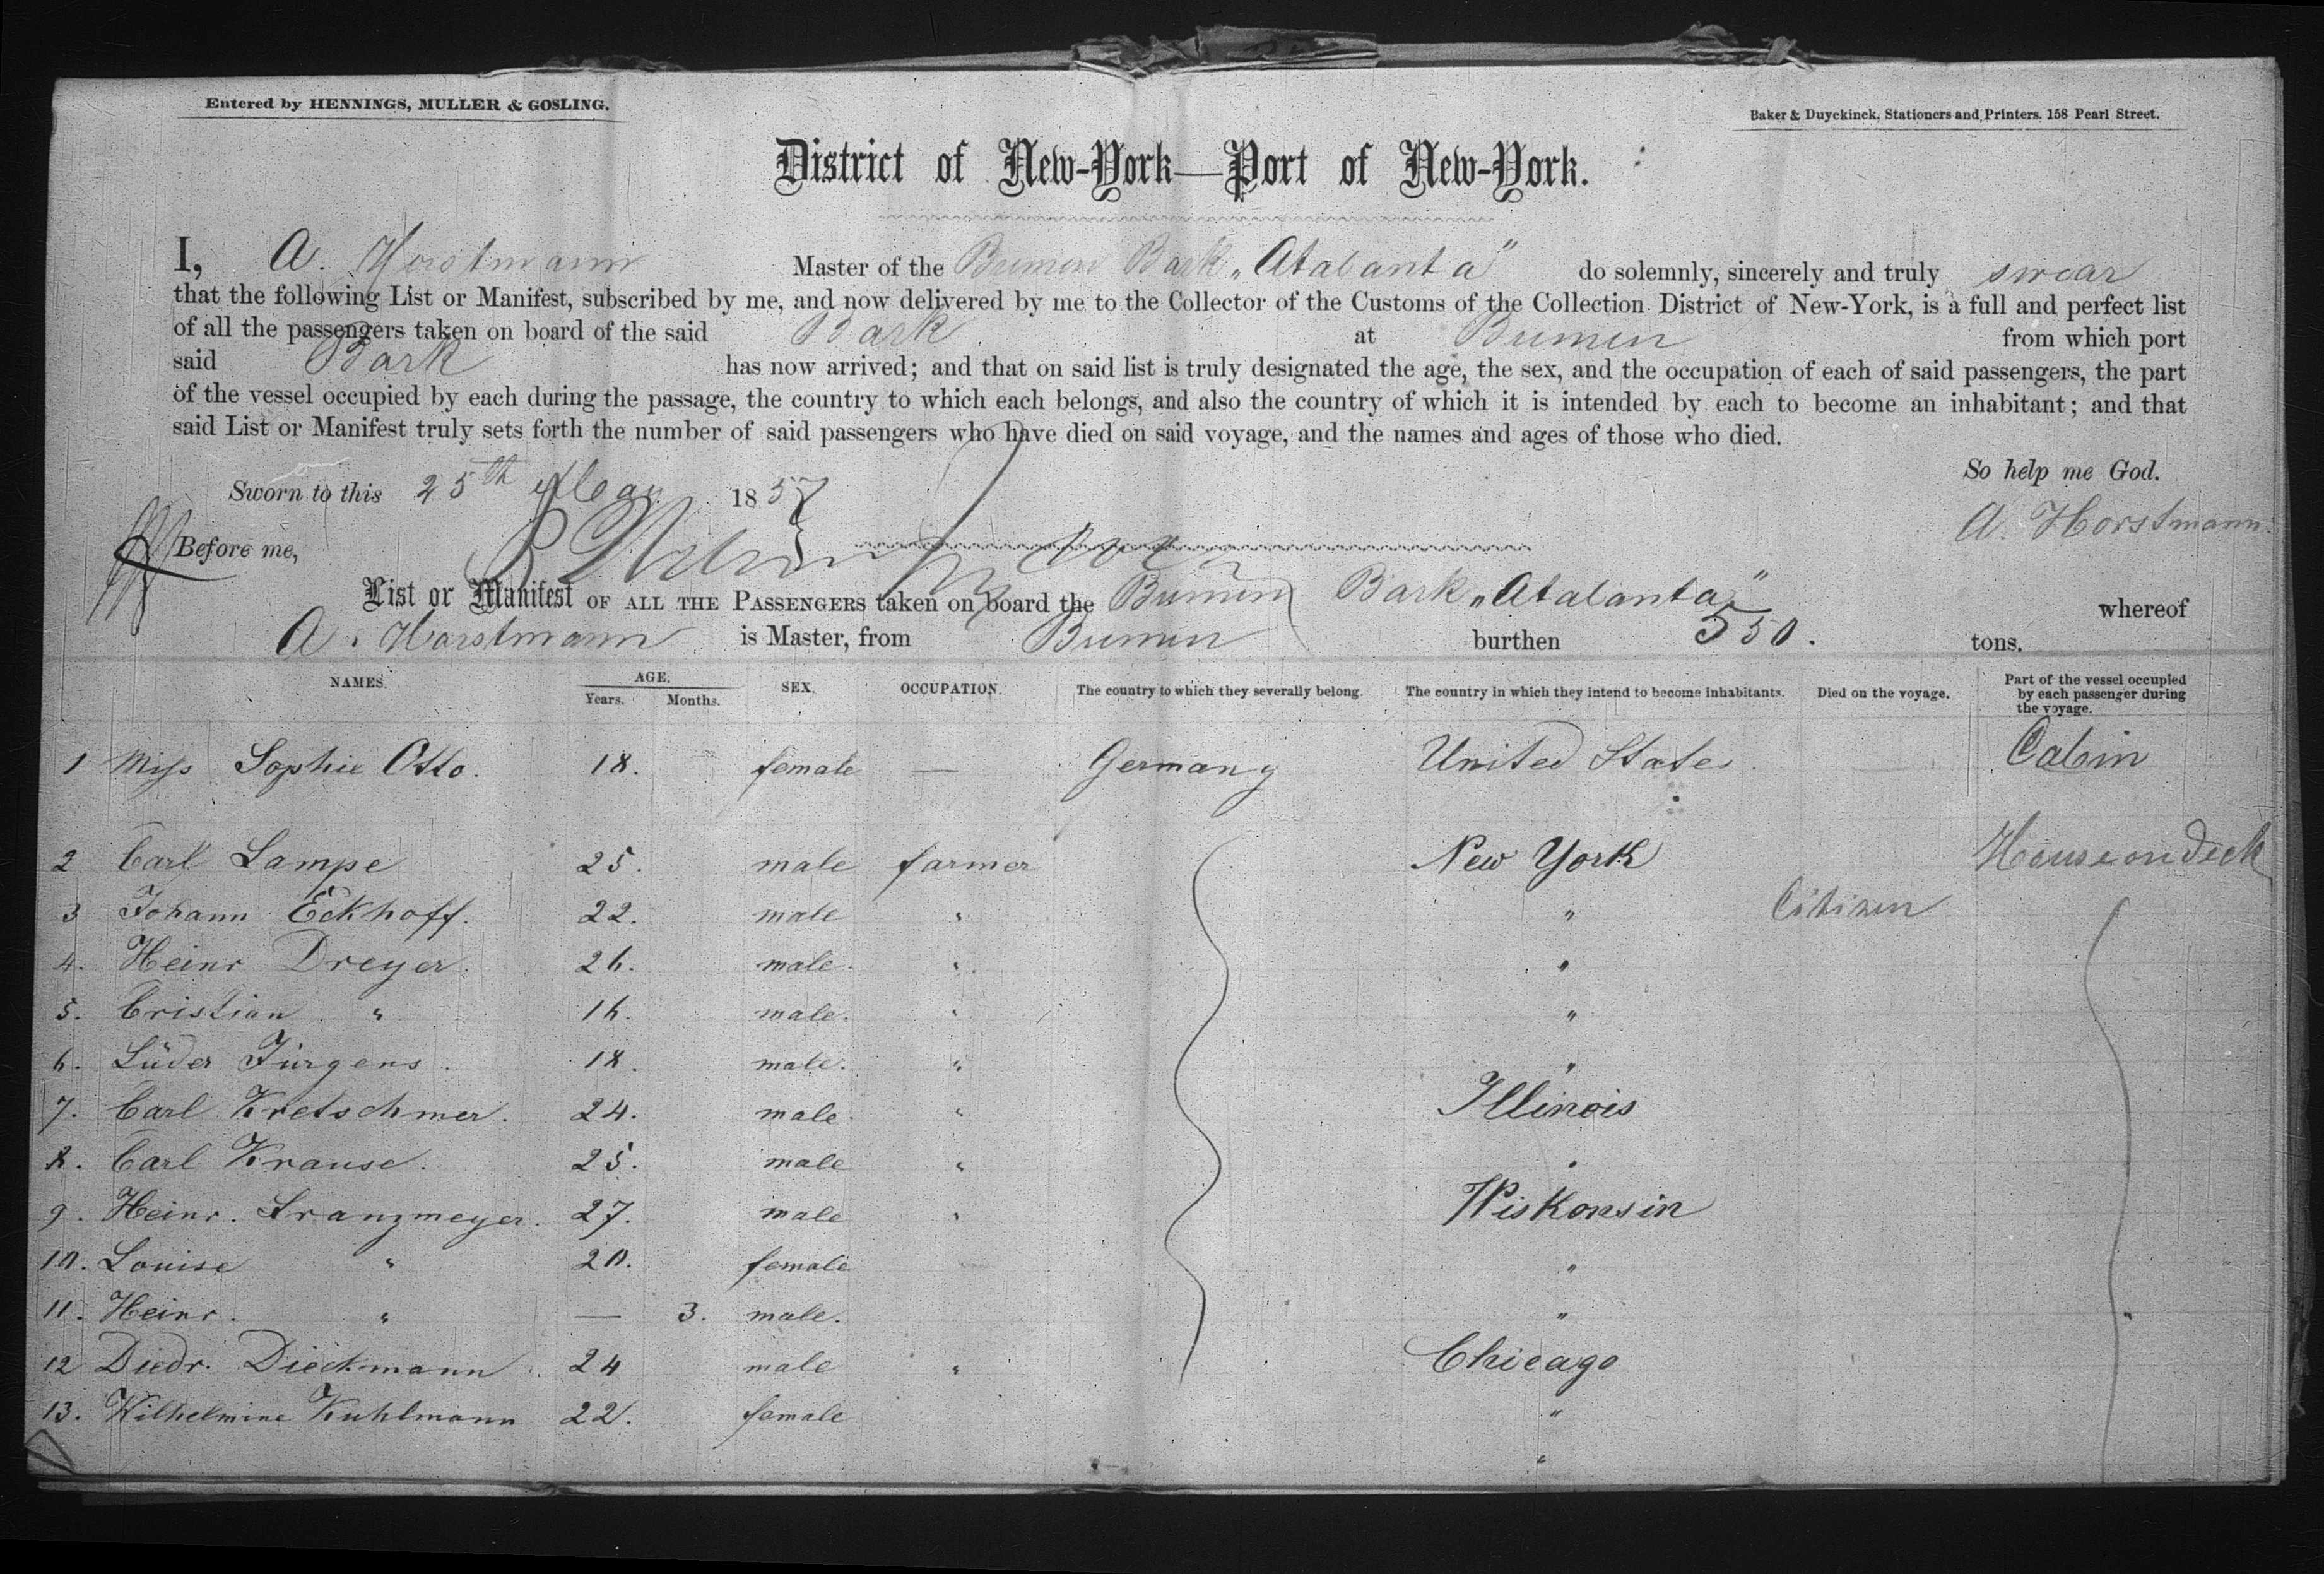 Entered by HENNINGS, MULLER & GOSLING.
Baker & Duyckinck, Stationers and Printers. 158 Pearl Street.
District of New-York—Port of New-York.
I, A. Horstmann Master of the Bremen Bark „Atalanta" do solemnly, sincerely and truly swear
that the following List or Manifest, subscribed by me, and now delivered by me to the Collector of the Customs of the Collection District of New-York, is a full and perfect list
of all the passengers taken on board of the said Bark at Bremen from which port
said Bark has now arrived; and that on said list is truly designated the age, the sex, and the occupation of each of said passengers, the part
of the vessel occupied by each during the passage, the country to which each belongs, and also the country of which it is intended by each to become an inhabitant; and that
said List or Manifest truly sets forth the number of said passengers who have died on said voyage, and the names and ages of those who died.
So help me God.
Sworn to this 25th May 1857
A. Horstmann.
Before me,
List or Manifest OF ALL THE PASSENGERS taken on board the Bremen Bark „Atalanta" whereof
A. Horstmann is Master, from Bremen burthen 550. tons.
NAMES. AGE. Years. Months. SEX. OCCUPATION. The country to which they severally belong. The country in which they intend to become inhabitants. Died on the voyage. Part of the vessel occupied by each passenger during the voyage.
1 Miss Sophie Otto. 18. female — Germany United States Cabin
2 Carl Lampe 25. male farmer New York House on deck
3 Johann Eckhoff. 22. male " " Citizen
4. Heinr Dreyer. 26. male. " "
5. Cristian " 16. male. " "
6. Lüder Jürgens. 18. male. " "
7. Carl Kretschmer. 24. male " Illinois
8. Carl Krause. 25. male " "
9. Heinr. Franzmeyer. 27. male " Wiskonsin
10. Louise " 20. female "
11. Heinr. " — 3. male. " "
12 Diedr. Dieckmann 24 male " Chicago
13. Wilhelmine Kuhlmann 22. female "
"